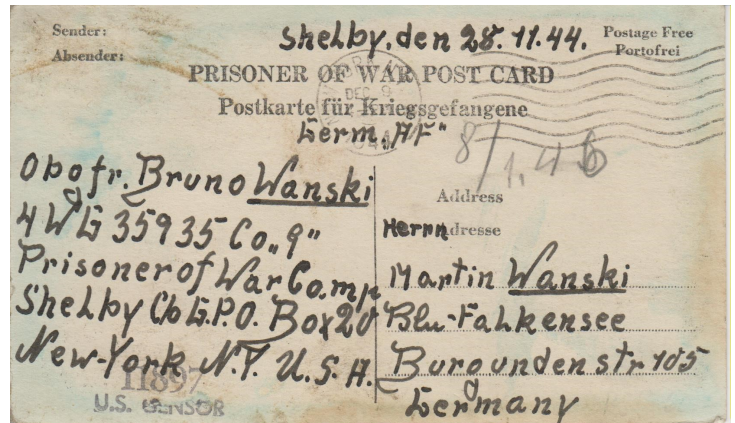 Sender:
Absender:
Shelby, den 28. 11. 44.
Postage Free
Portofrei
PRISONER OF WAR POST CARD
Postkarte für Kriegsgefangene
Germ. AF"
8/1.46
Obgfr. Bruno Wanski
4 WG 35935 Co „9"
Prisoner of War Camp
Shelby C/o G.P.O. Box 20
New-York N.Y. U.S.A.
11897
U.S. CENSOR
Address
Herrn Adresse
Martin Wanski
Bln-Falkensee
Burgundenstr 105
Germany